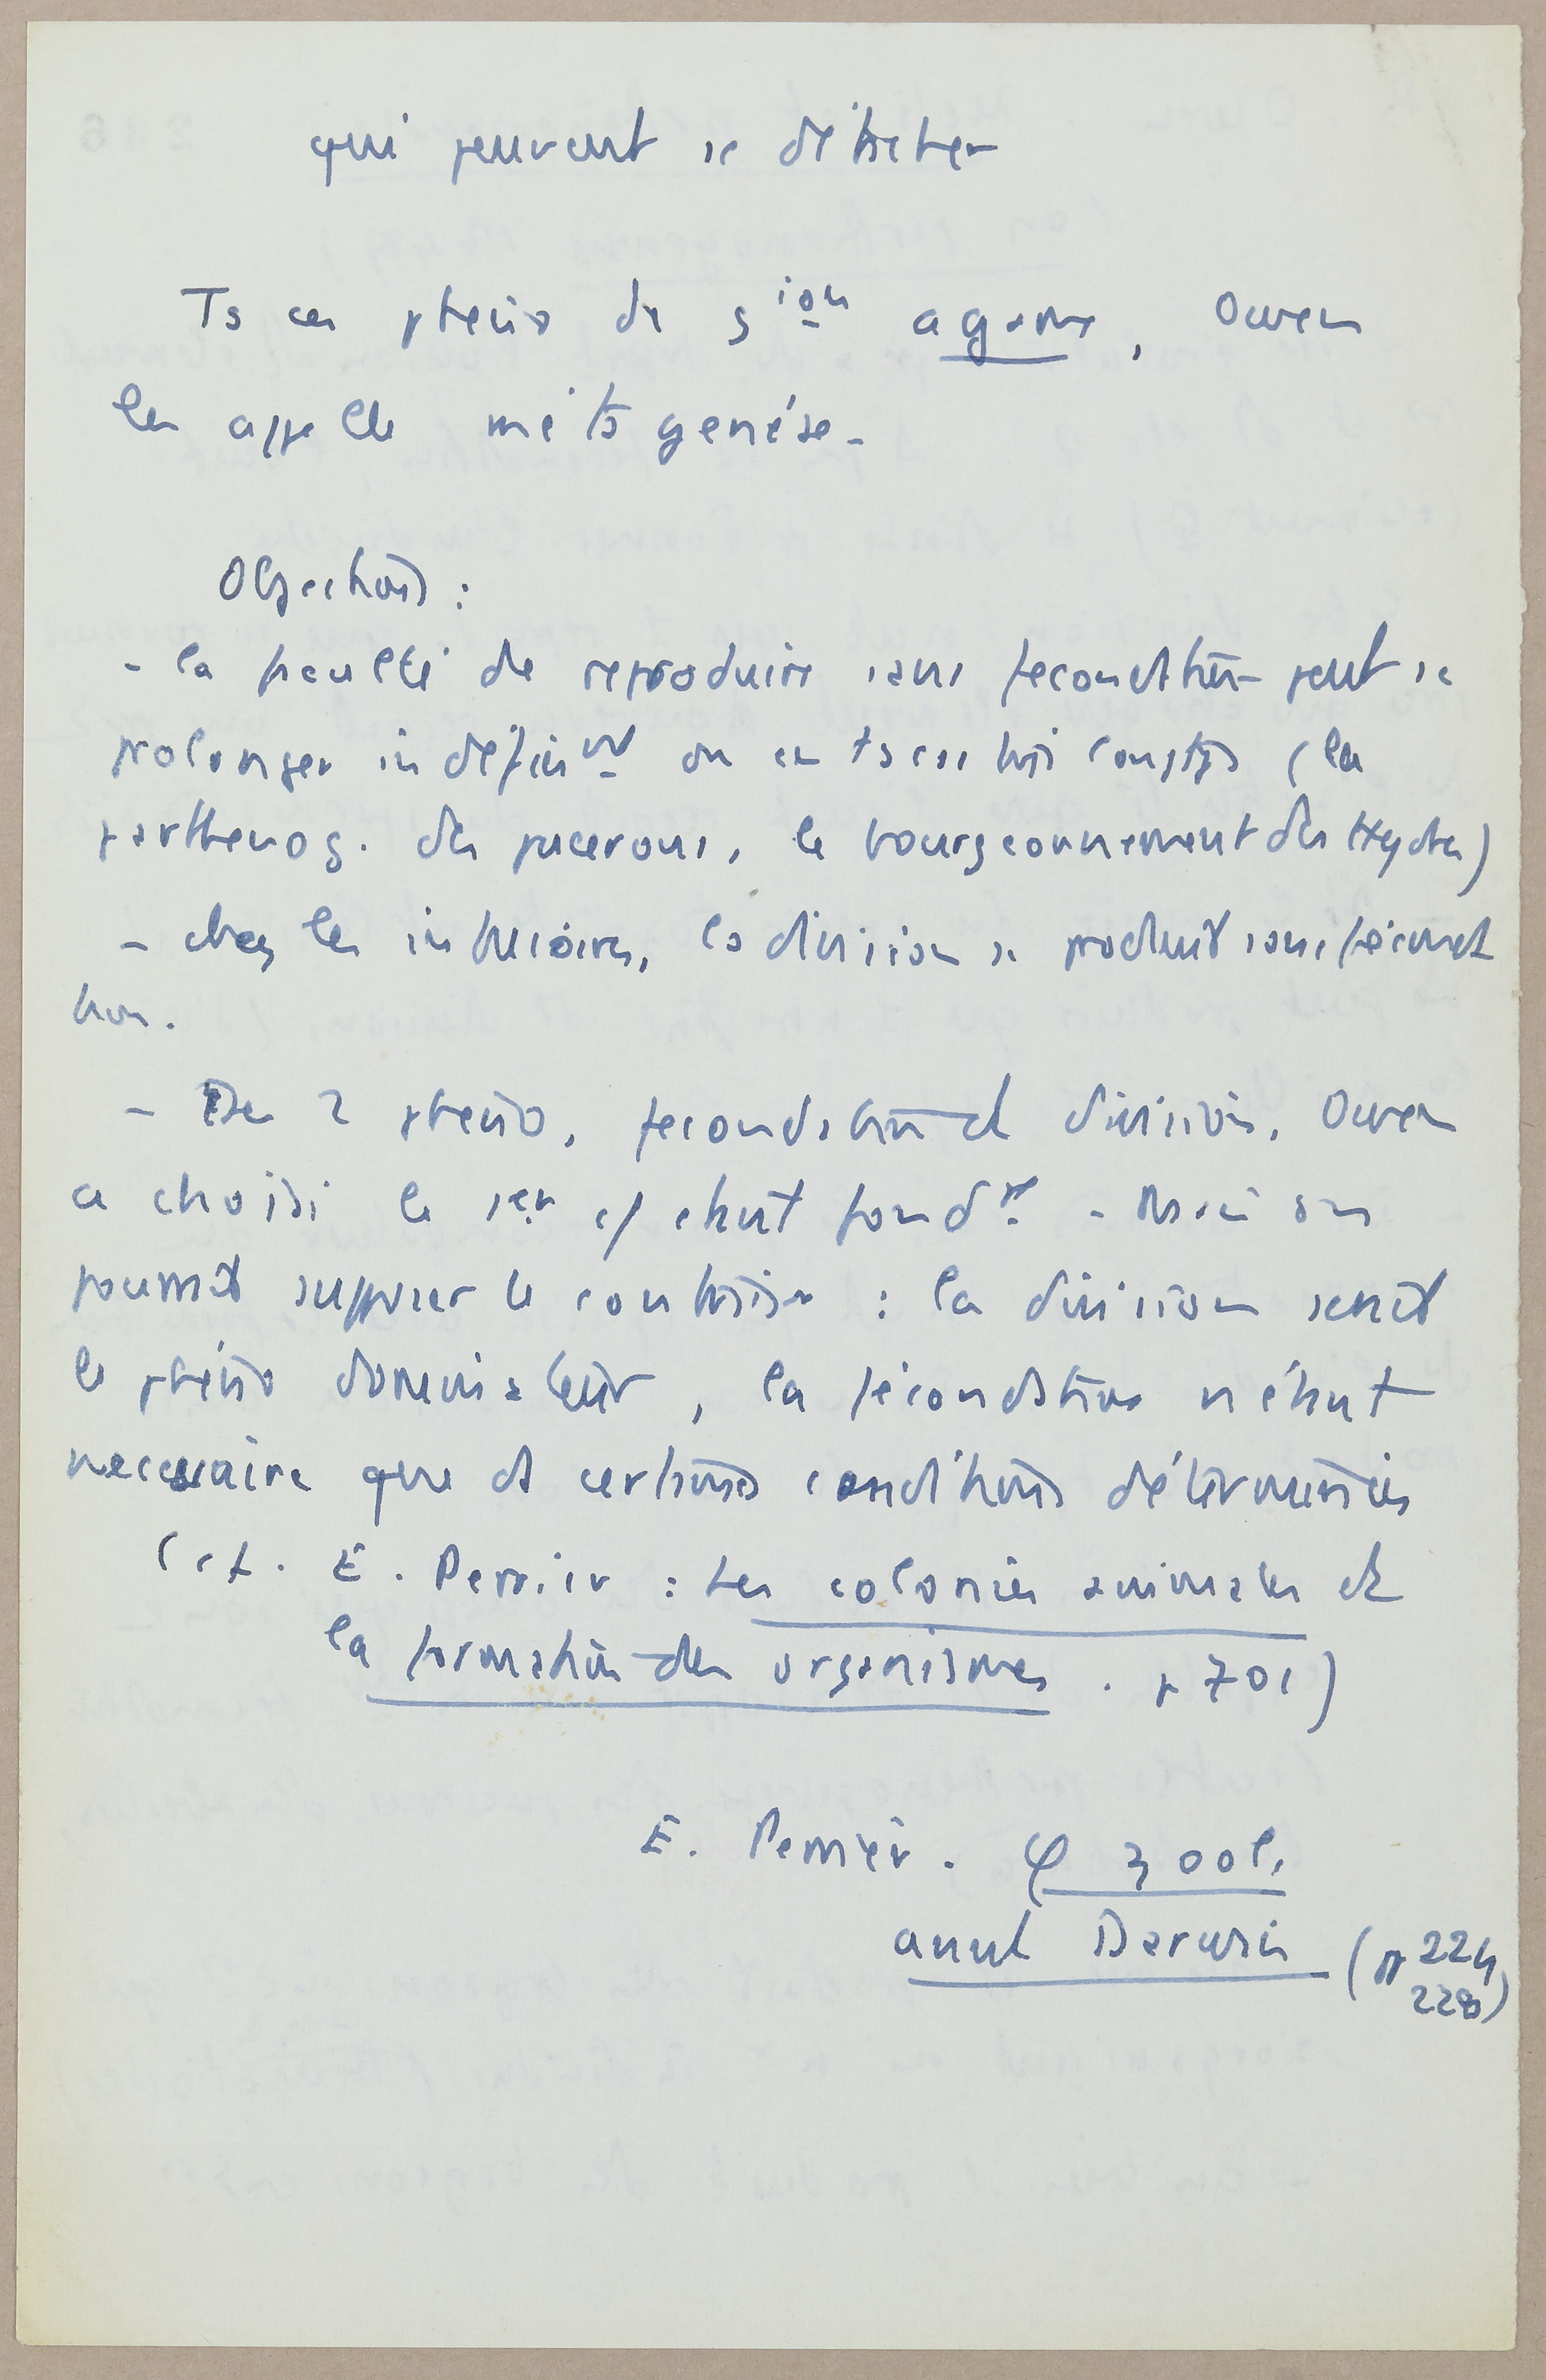 qui peuvent se détacher
Ts ces phéno de g^ion agame, Owen
les appelle métagenèse.
Objections :
- la faculté de reproduire sans fécondation peut se
prolonger indéfin^nt ou en ts cas très longtps (la
parthenog. des pucerons, le bourgeonnement des Hydres)
- chez les infusoires, la division se produit sans féconda
tion.
- Des 2 phéno, fécondation et division, Owen
a choisi le 1er c/ étant fond^al. Mais on
pourrait supposer le contraire : la division serait
le phéno dominateur, la fécondation n'étant
necessaire que ds certaines conditions déterminées
(cf. E. Perrier : Les colonies animales et
la formation des organismes. p 701)
E. Perrier. φ zool.
avant Darwin (pp 224
228)